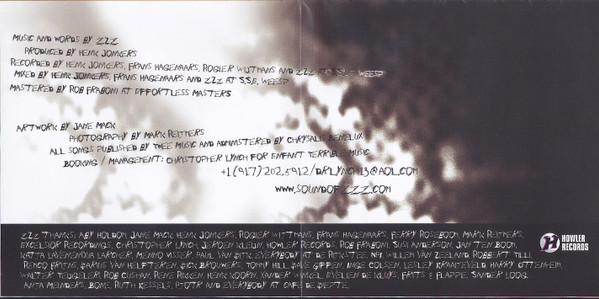 MUSIC AND WORDS BY ZZZ
PRODUCED BY HENK JONKERS
RECORDED BY HENK JONKERS, FRANS HAGENAARS, ROGIER WIJTMANS AND ZZZ AT S.S.E. WEESP
MIXED BY HENK JONKERS, FRANS HAGENAARS AND ZZZ AT S.S.E. WEESP
MASTERED BY ROB FRABONI AT EFFORTLESS MASTERS
ARTWORK BY JANE MACK
PHOTOGRAPHY BY MARK REITHERS
ALL SONGS PUBLISHED BY TWEE MUSIC AND ADMINISTERED BY CHRYSALIS BENELUX
BOOKING / MANAGEMENT: CHRISTOPHER LYNCH FOR ENFANT TERRIBLE MUSIC
+1(917)202.5912/DRLYNCH13@AOL.COM
WWW.SOUNDOFZZZ.COM
ZZZ THANKS: ABY HOLDON, JANE MACK, HENK JONKERS, ROGIER WIJTMANS, FRANS HAGENAARS, FERRY ROSEBOOM, MARK REITHERS,
EXCELSIOR RECORDINGS, CHRISTOPHER LYNCH, JEROEN KLEIJN, HOWLER RECORDS, ROB FRABONI, SUSI ANDERSON, JAN TEN BOOM,
KATIA LARDNER, MENNO VISSER, PAUL VAN DIJK, EVERYBODY AT DE WILLEM VAN ZEELAND, ROBERT TILLI,
RENZO FRIJNS, DARIUS VAN HELFTEREN, DICK BROUWERS, TONY HILL, DAVE GIFFEN, INGE COLSEN, LESLEY HARRY OTTENHEIM,
WALTER TEUGELER, ROB CUSHAM, RENE RIGGEN, HENK KOORN, XANDER WINKEL, EVELIEN DE FRITS & FLAPPIE, SANDER LOOG,
ANITA MEINDERS, BONE, RUTH KESSELS, PJOTR AND EVERYBODY AT CAFE DE DIEPTE.
HOWLER
RECORDS